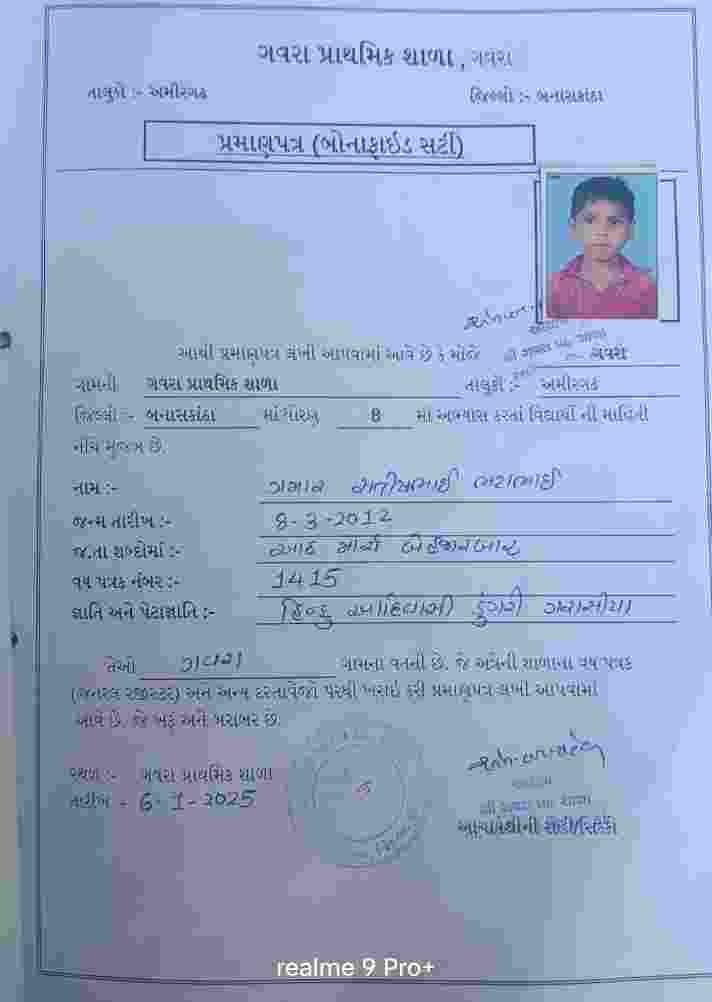 ગવરા પ્રાથમિક શાળા , ગવરા
તાલુકો :- અમીરગઢ
જિલ્લો :- બનાસકાંઠા
પ્રમાણપત્ર (બોનાફાઇડ સર્ટી)
આથી પ્રમાણપત્ર લખી આપવામાં આવે છે કે મોજે ગવરા
ગામની ગવરા પ્રાથમિક શાળા તાલુકો :- અમીરગઢ
જિલ્લો :- બનાસકાંઠા માં ધોરણ 8 માં અભ્યાસ કરતાં વિદ્યાર્થી ની માહિતી
નીચે મુજબ છે.
નામ :- ગમાર સતીષભાઈ
જન્મ તારીખ :- 8-3-2012
જ.તા શબ્દોમાં :- આઠ માર્ચ બે હજાર બાર
વય પત્રક નંબર :- 1415
જ્ઞાતિ અને પેટાજ્ઞાતિ :- હિન્દુ આદિવાસી ડુંગરી ગરાસીયા
તેઓ ગવરા ગામના વતની છે. જે અત્રેની શાળાના વય પત્રક
(જનરલ રજીસ્ટર) અને અન્ય દસ્તાવેજો પરથી ખરાઈ કરી પ્રમાણપત્ર લખી આપવામાં
આવે છે. જે ખરૂ અને બરાબર છે.
સ્થળ :- ગવરા પ્રાથમિક શાળા
તારીખ - 6-1-2025
આચાર્ય
શ્રી ગવરા પ્રા. શાળા
આચાર્યશ્રીની સહી/સિક્કો
realme 9 Pro+